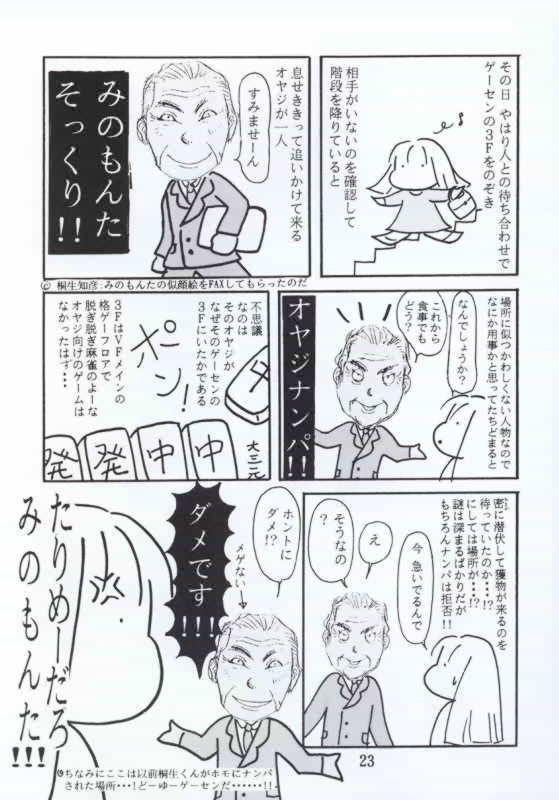 その日 やはり人との待ち合わせで
ゲーセンの3Fをのぞき
相手がいないのを確認して
階段を降りていると
息せききって追いかけて来る
オヤジが一人
すみませーん
みのもんた
そっくり!!
© 桐生知彦:みのもんたの似顔絵をFAXしてもらったのだ
場所に似つかわしくない人物なので
なにか用事かと思ってたちどまると
なんでしょうか?
これから
食事でも
どう?
オヤジナンパ!!
不思議
なのは
そのオヤジが
なぜそのゲーセンの
3Fにいたかである
ポン!
3FはVFメインの
格ゲーフロアで
脱ぎ脱ぎ麻雀のよーな
オヤジ向けのゲームは
なかったはず・・・
大三元
中
中
中
発
発
密に潜伏して獲物が来るのを
待っていたのか・・・!?
にしては場所が・・・!?
謎は深まるばかりだが
もちろんナンパは拒否!!
今 急いでるんで
え
そうなの
?
ホントに
ダメ!?
メゲない→
ダメです!!!
たりめーだろ
みのもんた!!!
ちなみにここは以前桐生くんがホモにナンパ
された場所・・・!どーゆーゲーセンだ・・・・・・!!
23